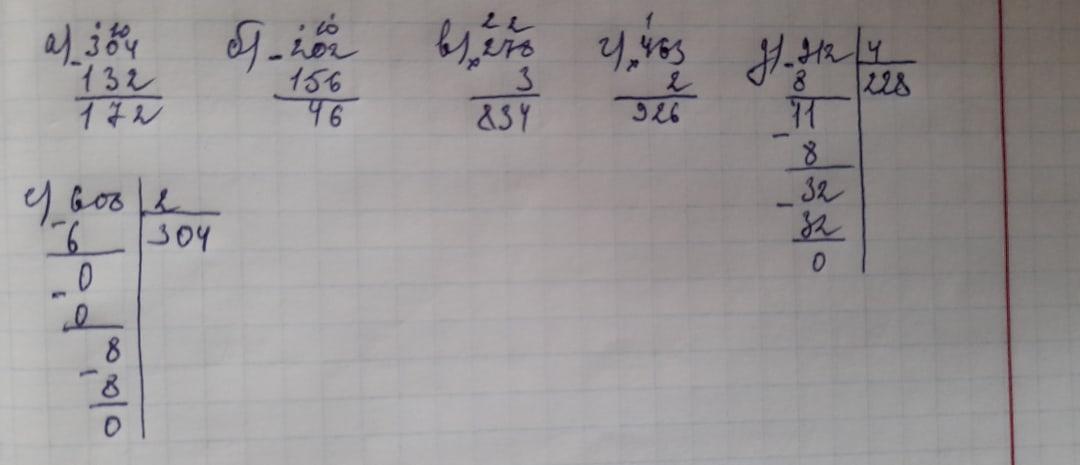 а) 304 б) 202 в) 278 г) 463 д) 912 4
- 132 - 156 × 3 × 2 - 8 228
172 46 834 926 11
- 8
е) 608 2 - 32
- 6 304 32
- 0 0
0
- 8
8
0